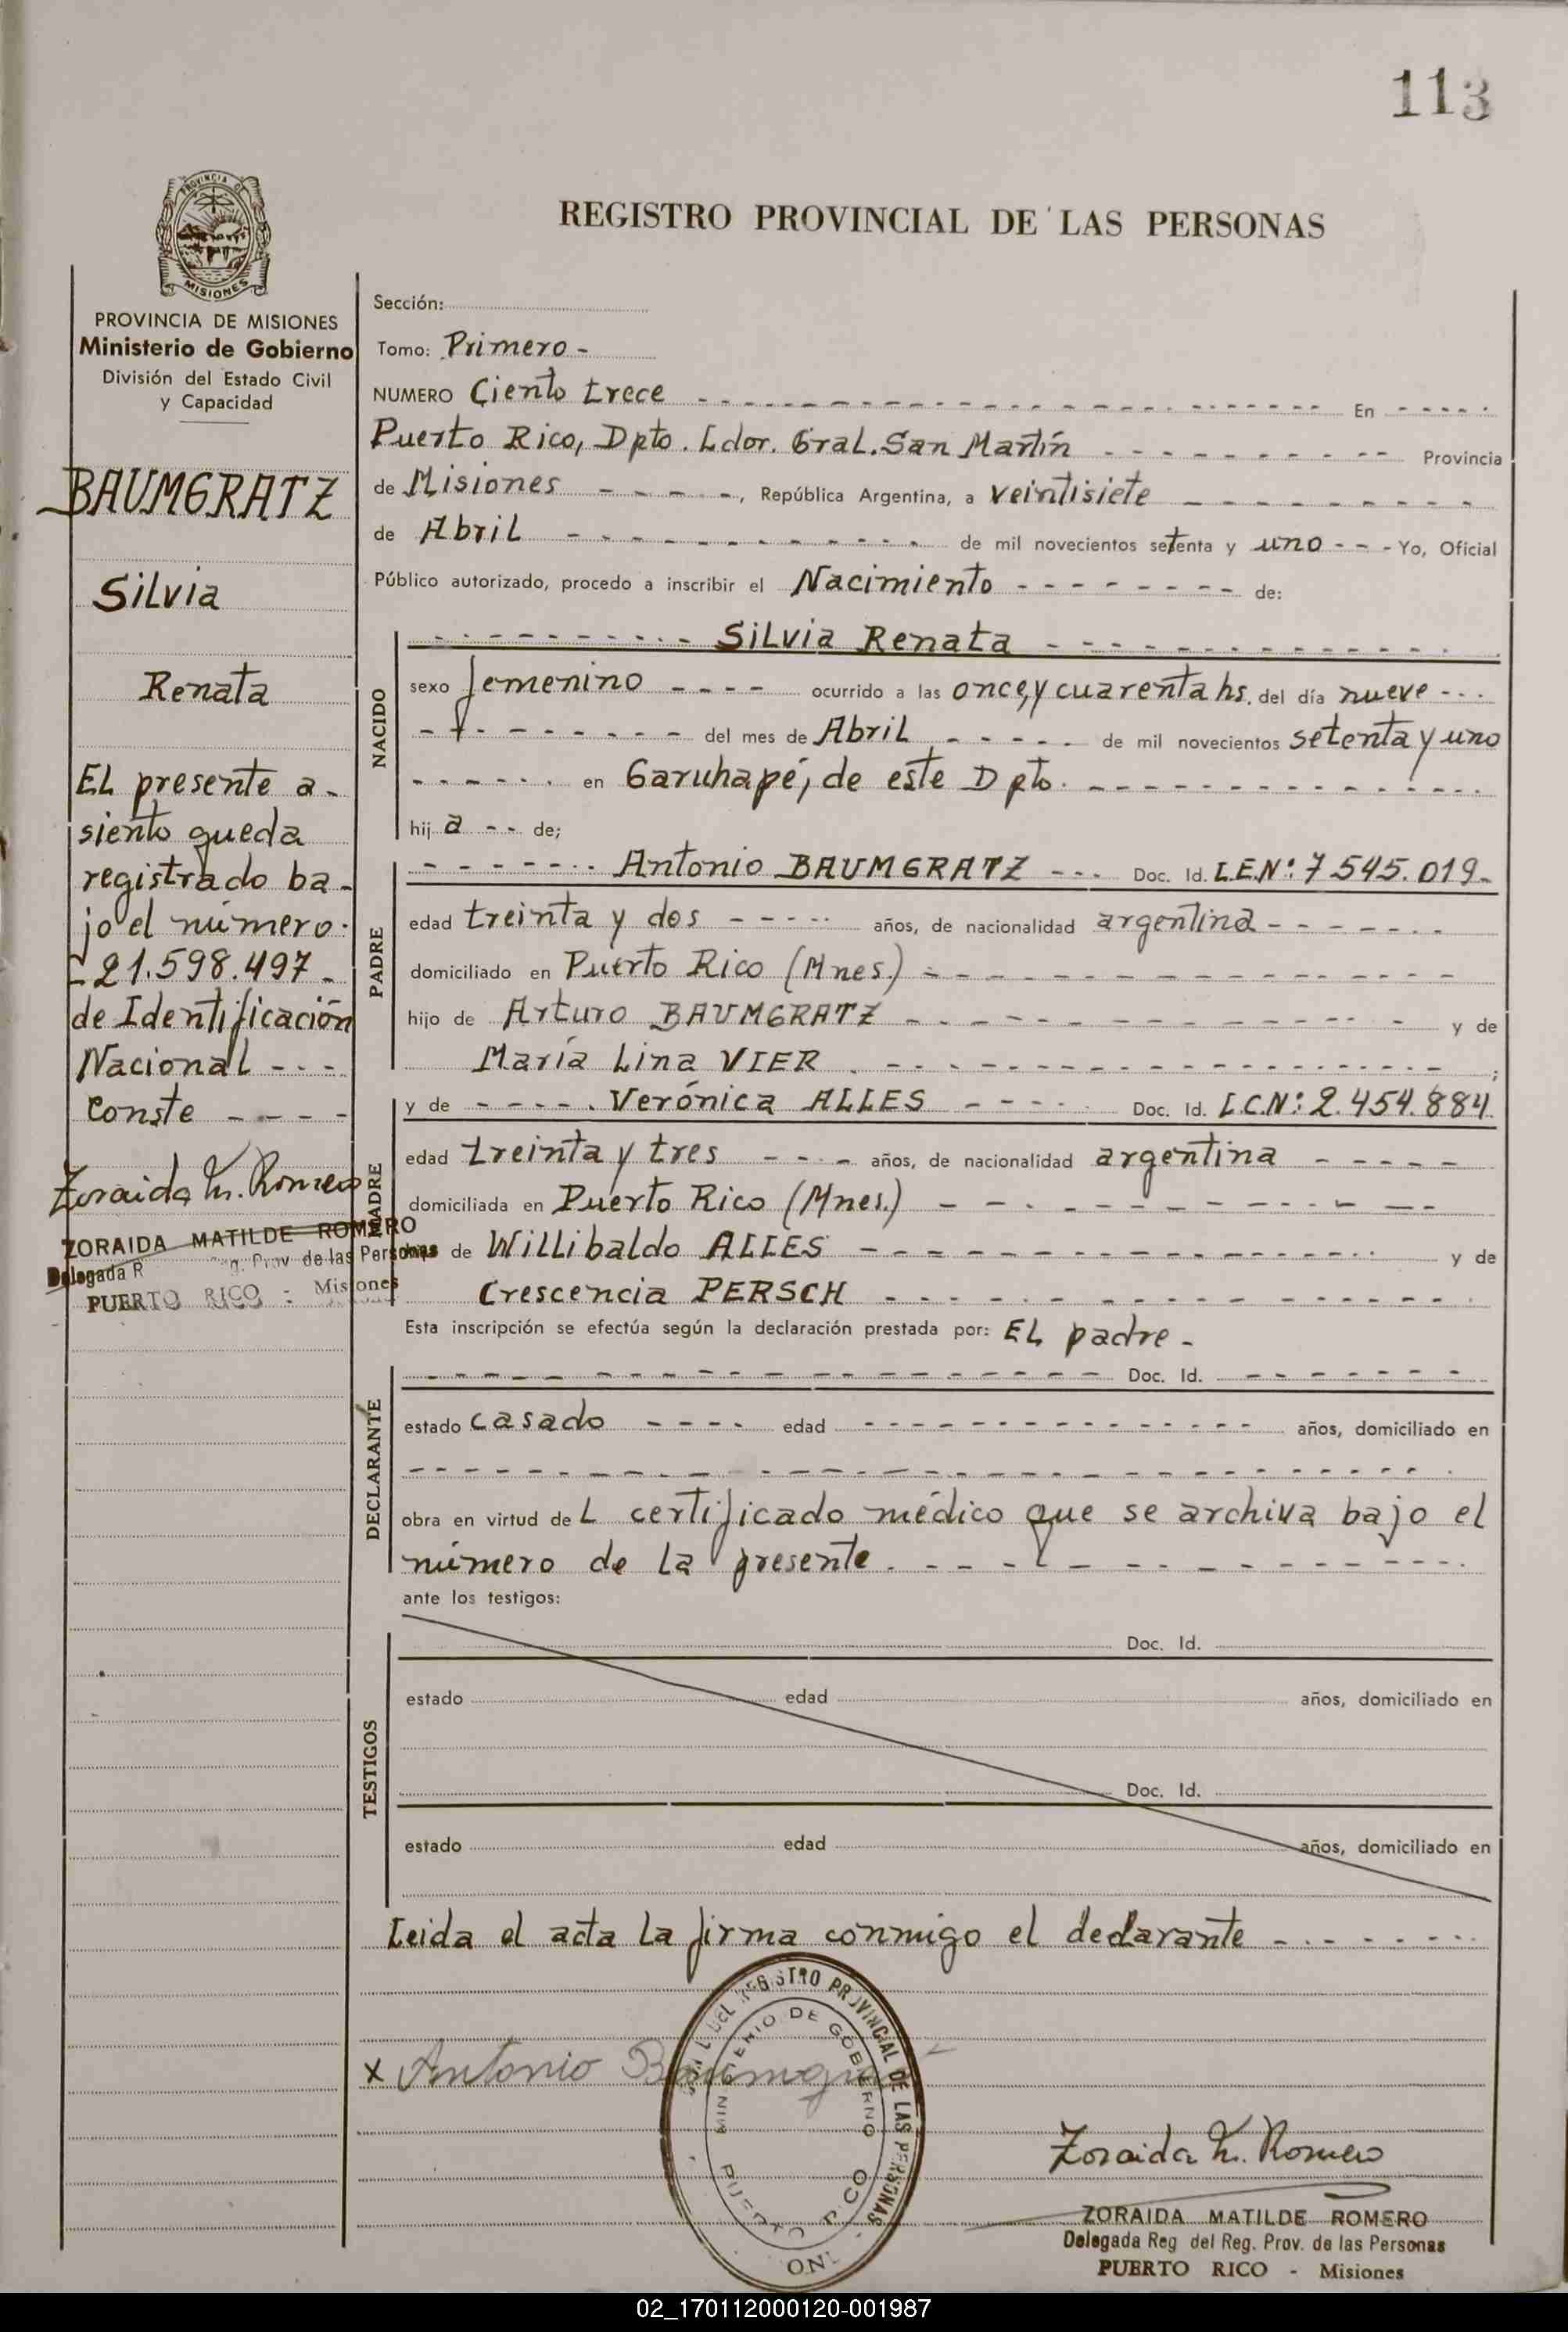 113
PROVINCIA DE
MISIONES
REGISTRO PROVINCIAL DE LAS PERSONAS
PROVINCIA DE MISIONES
Ministerio de Gobierno
División del Estado Civil
y Capacidad
BAUMGRATZ
Silvia
Renata
El presente a-
siento queda
registrado ba-
jo el número:
-21.598.497-
de Identificación
Nacional ---
Conste ----
Zoraida M. Romero
ZORAIDA MATILDE ROMERO
Delegada R g. Prov de las Personas
PUERTO RICO - Misiones
Sección:
Tomo: Primero -
NUMERO Ciento trece - - - En - - -
Puerto Rico, Dpto. Ldor. Gral. San Martín - - - Provincia
de Misiones - - - -, República Argentina, a veintisiete - - -
de Abril - - - de mil novecientos setenta y uno - - - Yo, Oficial
Público autorizado, procedo a inscribir el Nacimiento - - - de:
NACIDO
- - - Silvia Renata - - -
sexo femenino - - - - ocurrido a las once, y cuarenta hs. del día nueve - - -
- - - del mes de Abril - - - de mil novecientos setenta y uno
- - - en Garuhapé, de este Dpto. - - -
hij a - - de;
PADRE
- - - Antonio BAUMGRATZ - - - Doc. Id. L.E.Nº: 7 545.019.-
edad treinta y dos - - - años, de nacionalidad argentina - - -
domiciliado en Puerto Rico (Mnes.) - - -
hijo de Arturo BAUMGRATZ - - - y de
María Lina VIER - - - ;
MADRE
y de - - - Verónica ALLES - - - Doc. Id. L.C.Nº: 2.454.884
edad treinta y tres - - - años, de nacionalidad argentina - - -
domiciliada en Puerto Rico (Mnes.) - - -
de Willibaldo ALLES - - - y de
Crescencia PERSCH - - -
Esta inscripción se efectúa según la declaración prestada por: El padre -
DECLARANTE
- - - Doc. Id. - - -
estado casado - - - - edad - - - años, domiciliado en
- - -
obra en virtud de L certificado médico que se archiva bajo el
número de la presente. - - -
ante los testigos:
TESTIGOS
Doc. Id.
estado edad años, domiciliado en
Doc. Id.
estado edad años, domiciliado en
Leida el acta la firma conmigo el declarante - - -
x Antonio
DEL REGISTRO PROVINCIAL DE LAS PERSONAS
MINISTERIO DE GOBIERNO
PUERTO RICO
Zoraida M. Romero
ZORAIDA MATILDE ROMERO
Delegada Reg del Reg. Prov. de las Personas
PUERTO RICO - Misiones
02_170112000120-001987